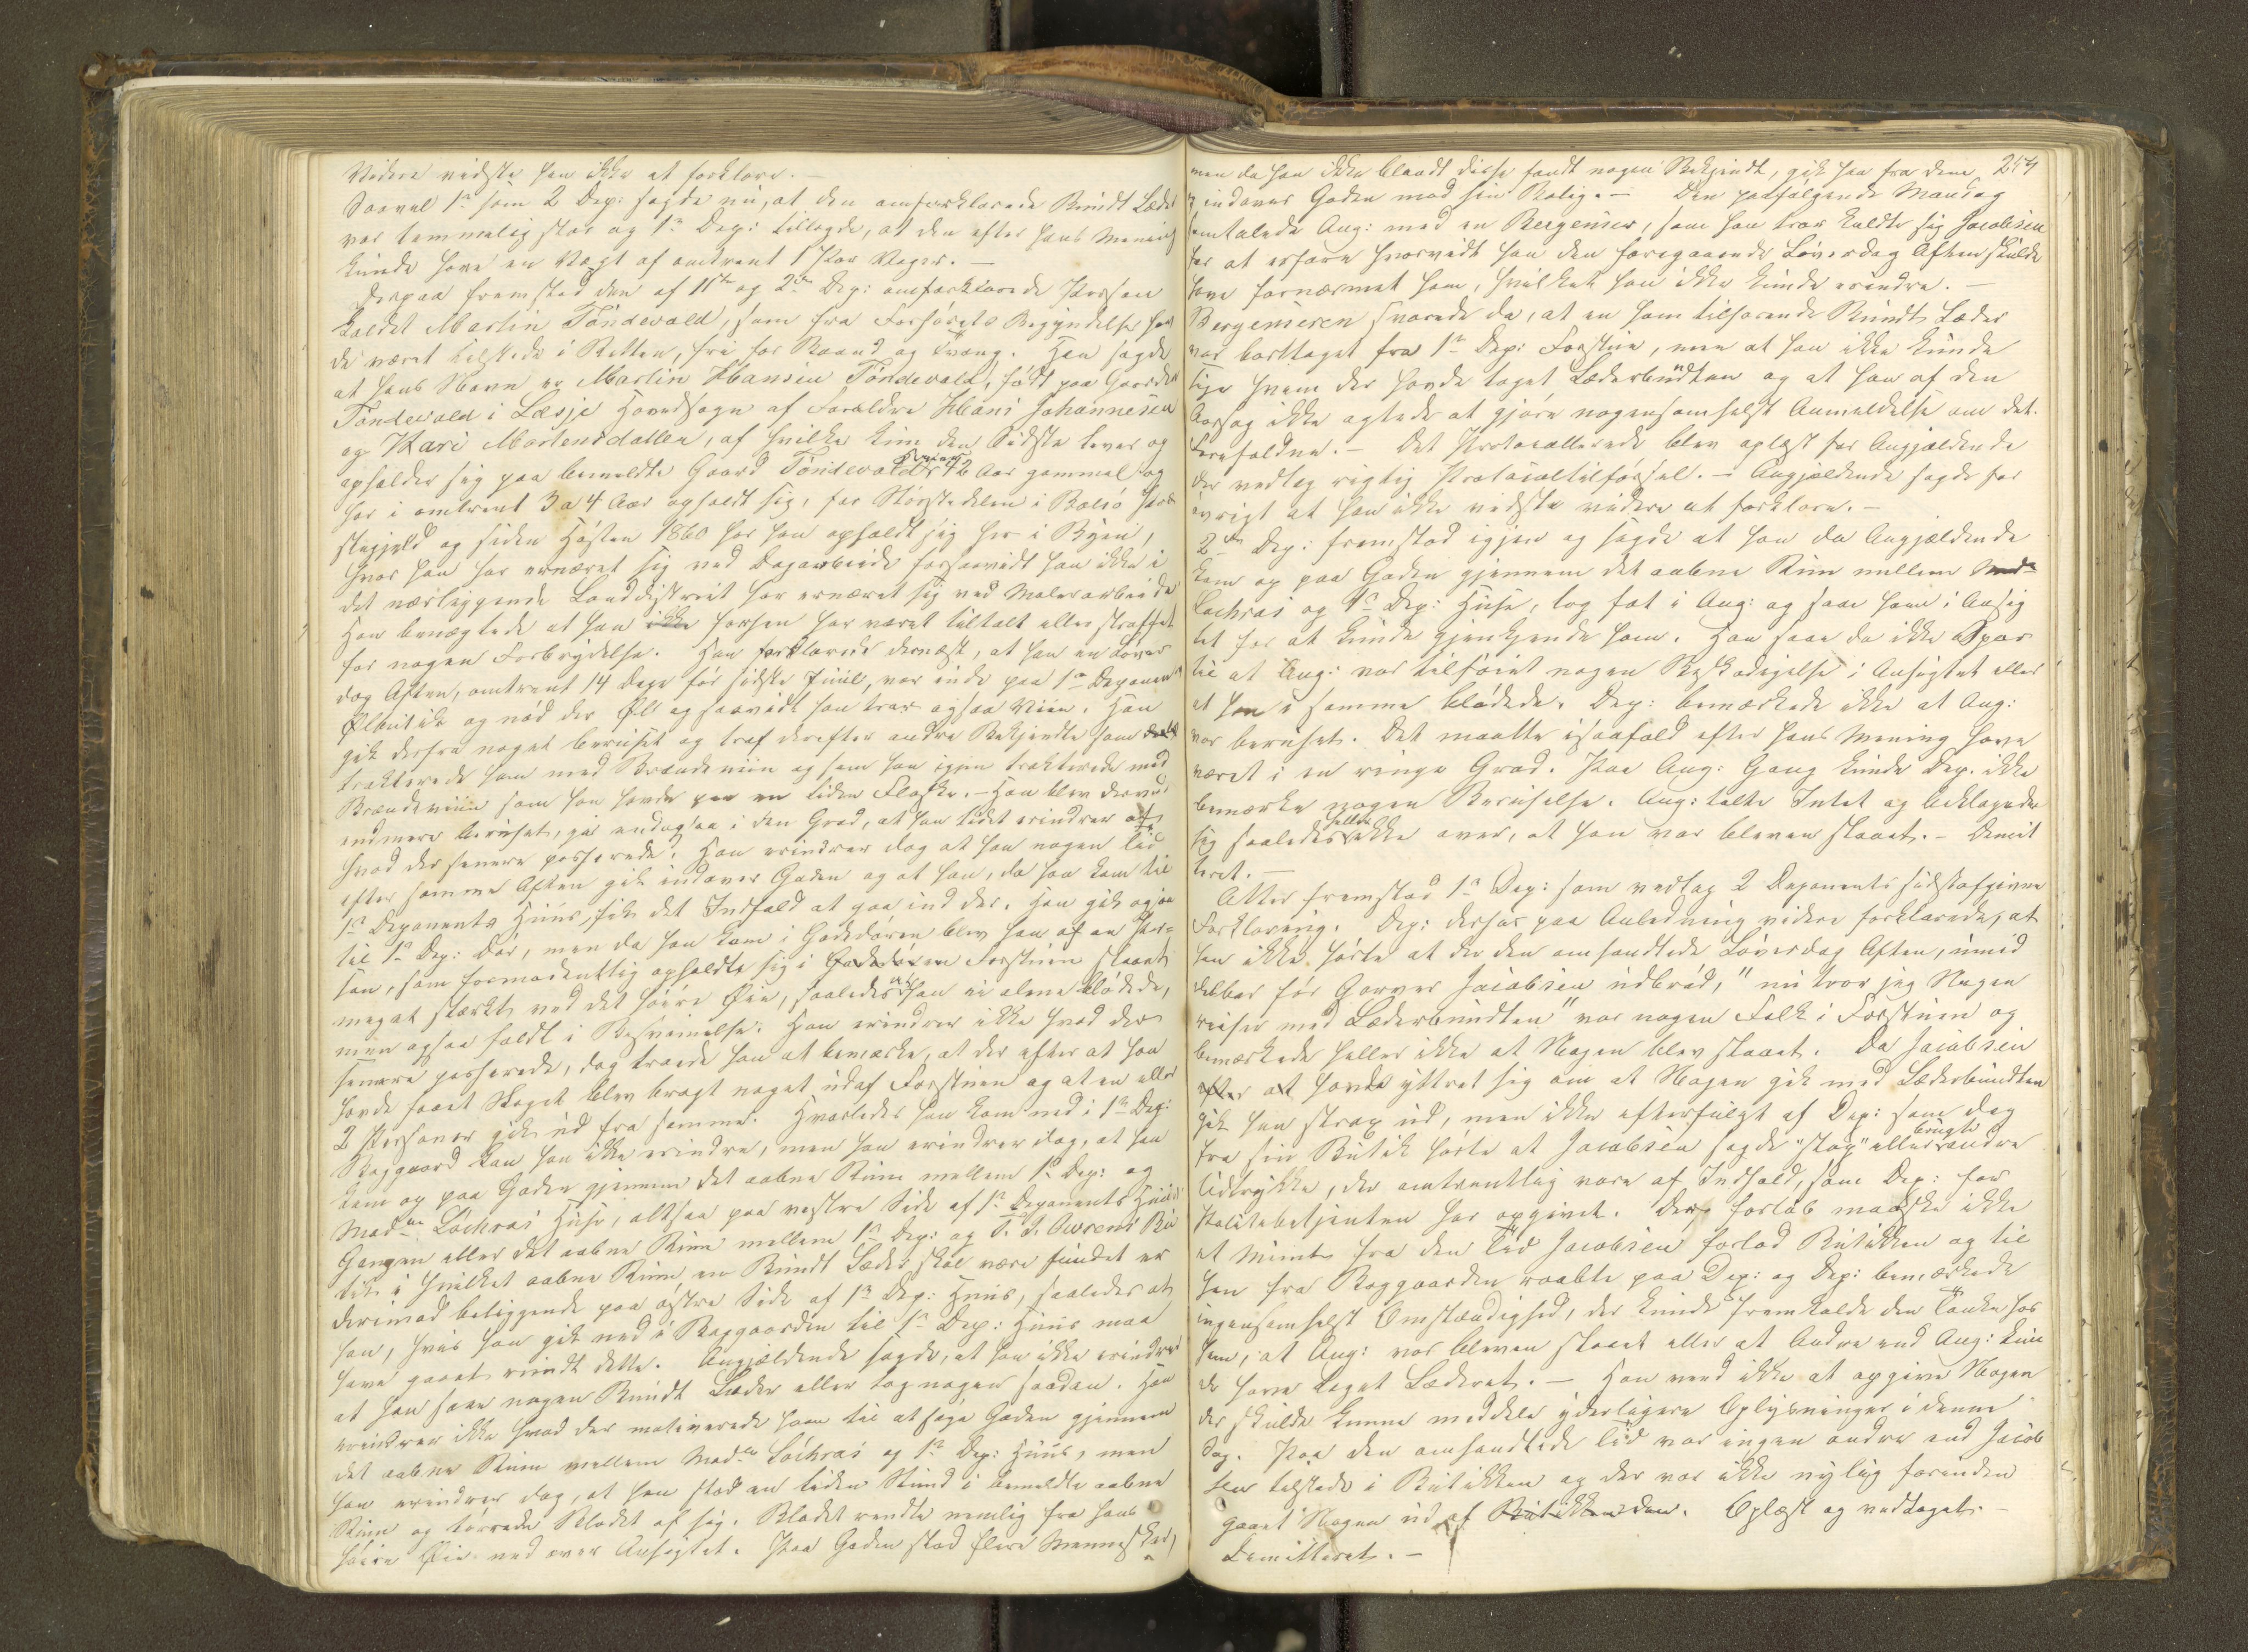 Videre vidste han ikke at forklare. —
Saavel 1ste som 2 Dep: sagde nu, at den omforklarede Bundt Læder
var temmelig stor og 1ste Dep: tillagde, at den efter hans Mening
kunde have en Vægt af omtrent 1 Voger. —
Derpaa fremstod den af 1ste og 2den Dep: omforklarede Person
kaldet Martin Tøndevold, som fra Forhørets Begyndelse hav
de været tilstede i Retten, fri for Baand og Tvang. Han sagde
at hans Navn er Martin Hansen Tøndevold, født paa Gaarden
Tøndevold i Læsje Hovedsogn af Forældre Hans Johannesen
og Kari Mortensdatter, af hvilke kun den Sidste lever og
opholder sig paa bemeldte Gaard Tøndevold, er 42 Aar gammel og
har i omtrent 3 a 4 Aar opholdt sig, for Størstedelen i Bolsø Præ
stegjeld og siden Høsten 1860 har han opholdt sig her i Byen,
hvor han har ernæret sig ved Dagarbeide forsaavidt han ikke i
det nærliggende Landdistrict har ernæret sig ved Malerarbeide
Han benægtede at han ikke forhen har været tiltalt eller straffet
for nogen Forbrydelse. Han forklarede dernæst, at han en Løver
dag Aften, omtrent 14 Dage før sidste Juul, var inde paa 1ste Deponents
Ølbutik og nød der Øl og saavidt han tror ogsaa Viin. Han
gik derfra noget beruset og traf derefter andre Bekjendte som
trakterede ham med Brændeviin og som han igjen trakterede med
Brændeviin som han havde paa en liden Flaske. — Han blev derved
endmere beruset, ja endogsaa i den Grad, at han lidet erindrer af
hvad der senere passerede. Han erindrer dog at han nogen Tid
efter samme Aften gik indover Gaden og at han, da han kom til
1ste Deponents Huus, fik det Indfald at gaa ind der. Han gik ogsaa
til 1ste Dep: Dør, men da han kom i Gadedøren blev han af en Per-
son, som formodentlig opholdte sig i Gadedøren Forstuen slaaet
meget stærkt ved det høire Øie, saaledes at han ei alene blødede,
men ogsaa faldt i Besvimelse. Han erindrer ikke hvad der
senere passerede, dog troede han at bemærke, at der efter at han
havde faaet Slaget blev bragt noget udaf Forstuen og at en eller
2 Personer gik ud fra samme. Hvorledes han kom ned i 1ste Dep:
Baggaard kan han ikke erindre, men han erindrer dog, at han
kom op paa Gaden gjennem det aabne Rum mellem 1ste Dep: og
Madme Lochras Huse, altsaa paa vestre Side af 1ste Deponents Huus
Gangen eller det aabne Rum mellem 1ste Dep: og P. J. Owrens Bu
tik i hvilket aabne Rum en Bundt Læder skal være fundet er
derimod beliggende paa østre Side af 1ste Dep: Huus, saaledes at
han, hvis han gik ned i Baggaarden til 1ste Dep: Huus maa
have gaaet rundt dette. Angjældende sagde, at han ikke erindrer
at han saae nogen Bundt Læder eller tog nogen saadan. Han
erindrer ikke hvad der motiverede ham til at søge Gaden gjennem
det aabne Rum mellem Madme Lochras og 1ste Dep: Huus, men
han erindrer dog, at han stod en liden Stund i bemeldte aabne
Rum og tørrede Blodet af sig. Blodet rendte nemlig fra hans
høire Øie ned over Ansigtet. Paa Gaden stod flere Mennesker,
254
men da han ikke blandt disse fandt nogen Bekjendt, gik han fra dem
indover Gaden mod sin Bolig. — Den paafølgende Mandag
omtalede Ang: med en Bergenser, som han tror kaldte sig Jacobsen
for at erfare hvorvidt han den foregaaende Løverdag Aften skulde
have fornærmet ham, hvilket han ikke kunde erindre. —
Bergenseren svarede da, at en ham tilhørende Bundt Læder
var borttaget fra 1ste Dep: Forstue, men at han ikke kunde
sige hvem der havde taget Læderbundten og at han af den
Aarsag ikke agtede at gjøre nogensomhelst Anmeldelse om det
Forefaldne. — Det Protocollerede blev oplæst for Angjældende
der vedtog rigtig Protocoltilførsel. — Angjældende sagde for
øvrigt at han ikke vidste videre at forklare. —
2den Dep: fremstod igjen og sagde at han da Angjældende
kom op paa Gaden gjennem det aabne Rum mellem Mad
Lochras og 1ste Dep: Huse, tog fat i Ang: og saae ham i Ansig
tet for at kunde gjenkjende ham. Han saae da ikke Spor
til at Ang: var tilføiet nogen Beskadigelse i Ansigtet eller
at han i samme blødede. Dep: bemærkede ikke at Ang:
var beruset. Det maatte isaafald efter hans Mening have
været i en ringe Grad. Paa Ang: Gang kunde Dep. ikke
bemærke nogen Beruselse. Ang: talte Intet og beklagede
sig saaledes heller ikke over, at han var bleven slaaet. — Demit
teret. —
Atter fremstod 1ste Dep: som vedtog 2 Deponents sidstafgivne
Forklaring. Dep: derhos paa Anledning videre forklarede, at
han ikke hørte at der den omhandlede Løverdag Aften, umid
delbar før Garver Jacobsen udbrød, "nu tror jeg Nogen
reiser med Læderbundten" var nogen Folk i Forstuen og
bemærkede heller ikke at Nogen blev slaaet. Da Jacobsen
efter at havde yttret sig om at Nogen gik med Læderbundten
gik han strax ud, men ikke efterfulgt af Dep: som dog
fra sin Butik hørte at Jacobsen sagde "stop" eller brugte andre
Udtrykke, der omtrentlig vare af Indhold, som Dep: for
Politibetjenten har opgivet. Der forløb maaske ikke
et Minut fra den Tid Jacobsen forlod Butikken og til
han fra Baggaarden raabte paa Dep: og Dep: bemærkede
ingensomhelst Omstændighed, der kunde fremkalde den Tanke hos
ham, at Ang: var bleven slaaet eller at Andre end Ang: kun
de have taget Læderet. — Han veed ikke at opgive Nogen
der skulde kunne meddele yderligere Oplysninger i denne
Sag. Paa den omhandlede Tid var ingen andre end Jacob
sen tilstede i Butikken og der var ikke nylig forinden
gaaet Nogen ud af Butikken den. Oplæst og vedtaget. —
Demitteret. —